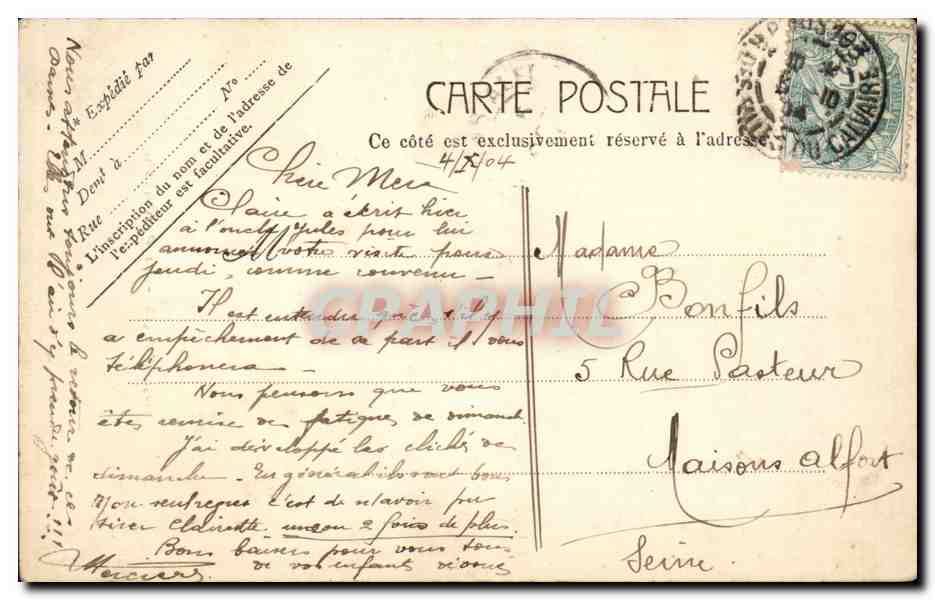 CARTE POSTALE
Ce côté est exclusivement réservé à l'adresse
Expédié par
M
Demt à
Rue
No
L'inscription du nom et de l'adresse de
l'expéditeur est facultative.
4/X/04
Chère Mère
Claire a écrit hier
à l'oncle Jules pour lui
annoncer votre visite pour
jeudi, comme convenu –
Il est entendu que s'il y
a empêchement de sa part il vous
téléphonera –
Nous pensons que vous
êtes remise des fatigues de dimanche
J'ai développé les clichés de
dimanche – En général ils sont bons
Mon regret c'est de n'avoir pu
tirer Clairette une ou 2 fois de plus.
Bons baisers pour vous tous
de vos enfants dévoués
Nous attendons toujours le retour de ces
dames. Elles ont l'air d'y prendre goût !!!
Madame
Bonfils
5 Rue Pasteur
Maisons Alfort
Seine
CALVAIRE
CPAPHIL